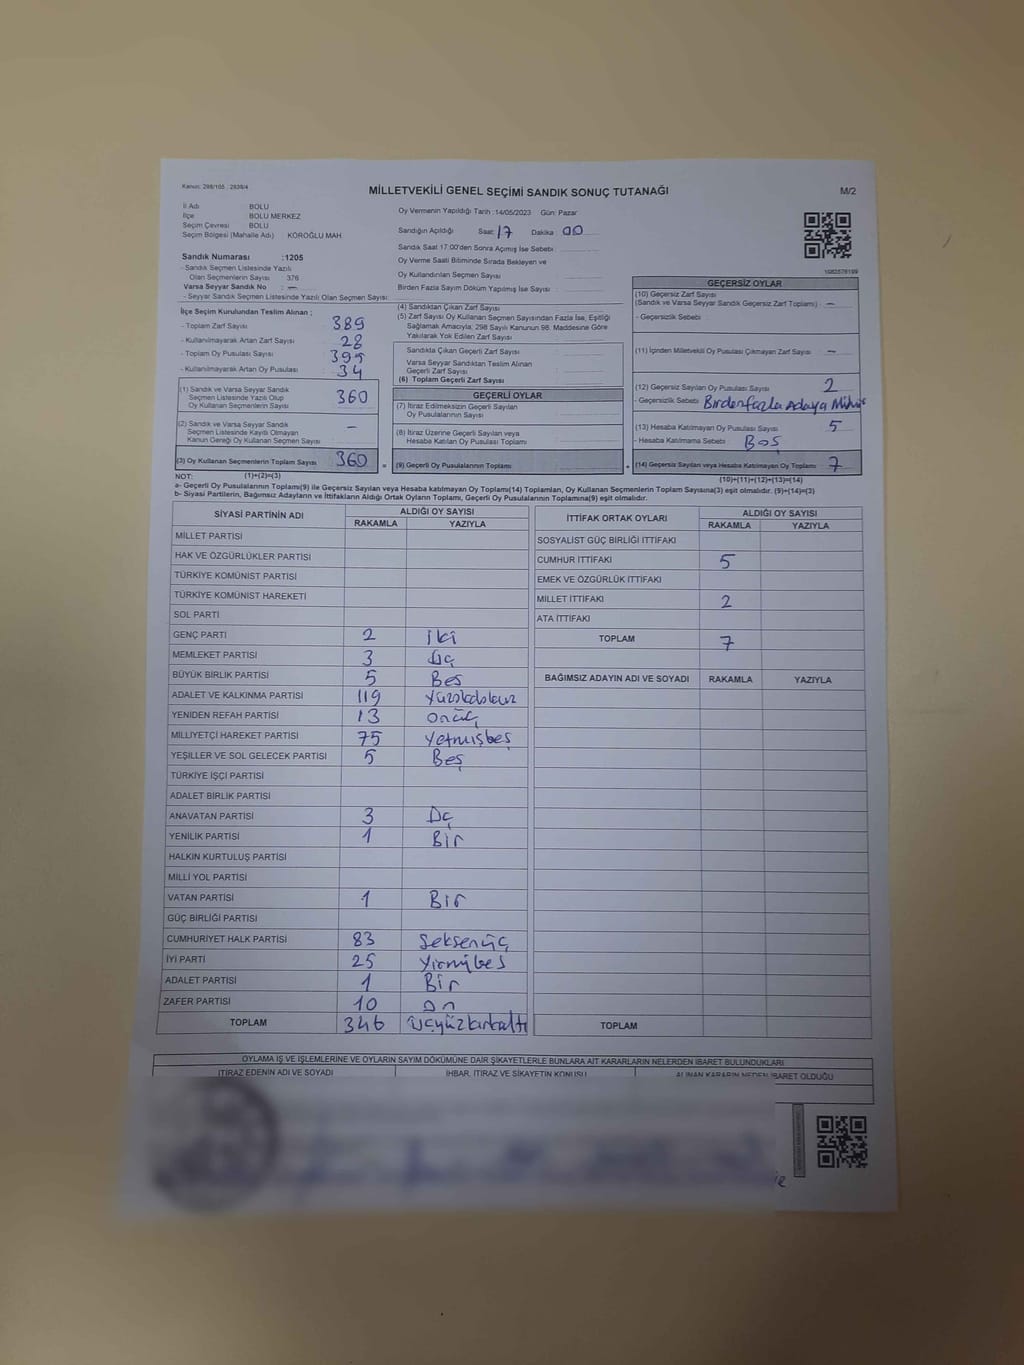 Kanun: 298/105 ; 2839/4
MİLLETVEKİLİ GENEL SEÇİMİ SANDIK SONUÇ TUTANAĞI
M/2
İl Adı : BOLU
İlçe : BOLU MERKEZ
Seçim Çevresi : BOLU
Seçim Bölgesi (Mahalle Adı) : KÖROĞLU MAH.
Sandık Numarası :1205
- Sandık Seçmen Listesinde Yazılı
Olan Seçmenlerin Sayısı : 376
Varsa Seyyar Sandık No : —
- Seyyar Sandık Seçmen Listesinde Yazılı Olan Seçmen Sayısı:
İlçe Seçim Kurulundan Teslim Alınan ;
- Toplam Zarf Sayısı : 389
- Kullanılmayarak Artan Zarf Sayısı : 28
- Toplam Oy Pusulası Sayısı :
- Kullanılmayarak Artan Oy Pusulası : 34
(1) Sandık ve Varsa Seyyar Sandık
Seçmen Listesinde Yazılı Olup
Oy Kullanan Seçmenlerin Sayısı : 360
(2) Sandık ve Varsa Seyyar Sandık
Seçmen Listesinde Kayıtlı Olmayan
Kanun Gereği Oy Kullanan Seçmen Sayısı : —
(3) Oy Kullanan Seçmenlerin Toplam Sayısı : 360
Oy Vermenin Yapıldığı Tarih :14/05/2023 Gün: Pazar
Sandığın Açıldığı Saat: 17 Dakika : 00
Sandık Saat 17:00'den Sonra Açılmış İse Sebebi :
Oy Verme Saati Bitiminde Sırada Bekleyen ve
Oy Kullandırılan Seçmen Sayısı :
Birden Fazla Sayım Döküm Yapılmış İse Sayısı :
(4) Sandıktan Çıkan Zarf Sayısı :
(5) Zarf Sayısı Oy Kullanan Seçmen Sayısından Fazla İse, Eşitliği
Sağlamak Amacıyla; 298 Sayılı Kanunun 98. Maddesine Göre
Yakılarak Yok Edilen Zarf Sayısı :
Sandıkta Çıkan Geçerli Zarf Sayısı :
Varsa Seyyar Sandıktan Teslim Alınan
Geçerli Zarf Sayısı :
(6) Toplam Geçerli Zarf Sayısı :
GEÇERLİ OYLAR
(7) İtiraz Edilmeksizin Geçerli Sayılan
Oy Pusulalarının Sayısı :
(8) İtiraz Üzerine Geçerli Sayılan veya
Hesaba Katılan Oy Pusulası Toplamı :
= (9) Geçerli Oy Pusulalarının Toplamı :
1082578199
GEÇERSİZ OYLAR
(10) Geçersiz Zarf Sayısı
(Sandık ve Varsa Seyyar Sandık Geçersiz Zarf Toplamı) : —
- Geçersizlik Sebebi :
(11) İçinden Milletvekili Oy Pusulası Çıkmayan Zarf Sayısı : —
(12) Geçersiz Sayılan Oy Pusulası Sayısı : 2
- Geçersizlik Sebebi : Birdenfazla Adaya
(13) Hesaba Katılmayan Oy Sayısı : 5
- Hesaba Katılmama Sebebi : Boş
+ (14) Geçersiz Sayılan veya Hesaba Katılmayan Oy Toplamı : 7
NOT: (1)+(2)=(3)
(10)+(11)+(12)+(13)=(14)
a- Geçerli Oy Pusulalarının Toplamı(9) ile Geçersiz Sayılan veya Hesaba katılmayan Oy Toplamı(14) Toplamları, Oy Kullanan Seçmenlerin Toplam Sayısına(3) eşit olmalıdır. (9)+(14)=(3)
b- Siyasi Partilerin, Bağımsız Adayların ve İttifakların Aldığı Ortak Oyların Toplamı, Geçerli Oy Pusulalarının Toplamına(9) eşit olmalıdır.
SİYASİ PARTİNİN ADI ALDIĞI OY SAYISI
RAKAMLA YAZIYLA
MİLLET PARTİSİ
HAK VE ÖZGÜRLÜKLER PARTİSİ
TÜRKİYE KOMÜNİST PARTİSİ
TÜRKİYE KOMÜNİST HAREKETİ
SOL PARTİ
GENÇ PARTİ 2 iki
MEMLEKET PARTİSİ 3 üç
BÜYÜK BİRLİK PARTİSİ 5 Beş
ADALET VE KALKINMA PARTİSİ 119
YENİDEN REFAH PARTİSİ 13 onüç
MİLLİYETÇİ HAREKET PARTİSİ 75 yetmişbeş
YEŞİLLER VE SOL GELECEK PARTİSİ 5 Beş
TÜRKİYE İŞÇİ PARTİSİ
ADALET BİRLİK PARTİSİ
ANAVATAN PARTİSİ 3 Üç
YENİLİK PARTİSİ 1 Bir
HALKIN KURTULUŞ PARTİSİ
MİLLİ YOL PARTİSİ
VATAN PARTİSİ 1 Bir
GÜÇ BİRLİĞİ PARTİSİ
CUMHURİYET HALK PARTİSİ 83 Seksenüç
İYİ PARTİ 25 Yirmibeş
ADALET PARTİSİ 1 Bir
ZAFER PARTİSİ 10 On
TOPLAM 346 üçyüzkırkaltı
İTTİFAK ORTAK OYLARI ALDIĞI OY SAYISI
RAKAMLA YAZIYLA
SOSYALİST GÜÇ BİRLİĞİ İTTİFAKI
CUMHUR İTTİFAKI 5
EMEK VE ÖZGÜRLÜK İTTİFAKI
MİLLET İTTİFAKI 2
ATA İTTİFAKI
TOPLAM 7
BAĞIMSIZ ADAYIN ADI VE SOYADI RAKAMLA YAZIYLA
TOPLAM
OYLAMA İŞ VE İŞLEMLERİNE VE OYLARIN SAYIM DÖKÜMÜNE DAİR ŞİKAYETLERLE BUNLARA AİT KARARLARIN NELERDEN İBARET BULUNDUKLARI
İTİRAZ EDENİN ADI VE SOYADI İHBAR, İTİRAZ VE ŞİKAYETİN KONUSU ALINAN KARARIN NEDEN İBARET OLDUĞU